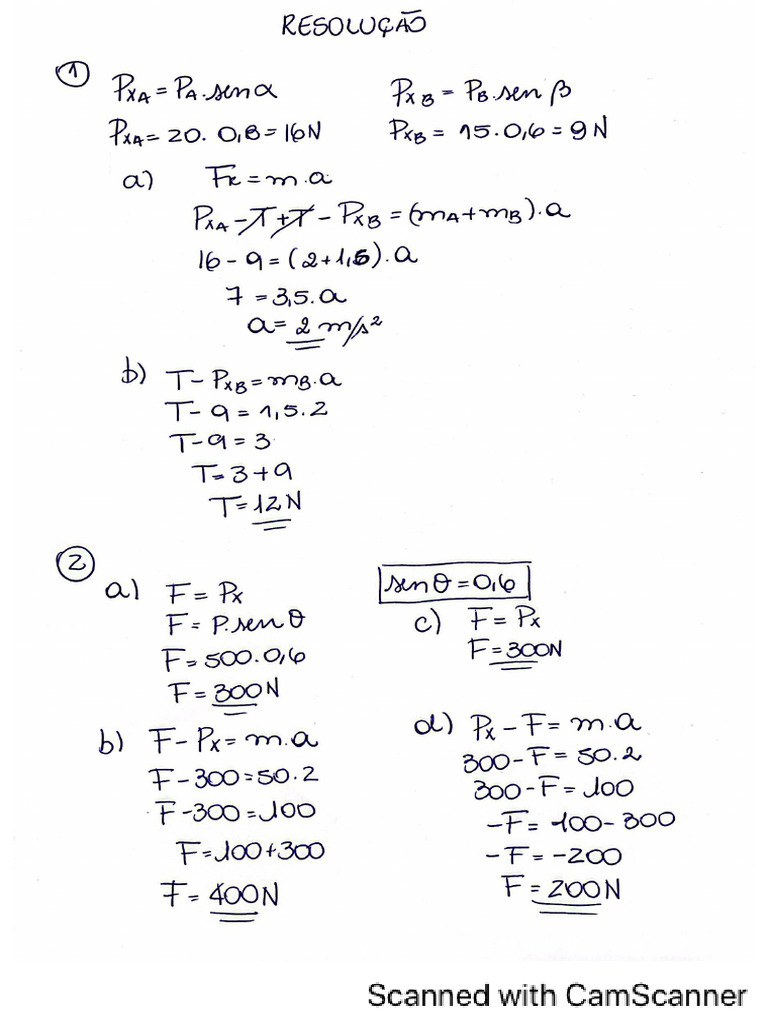 RESOLUÇÃO
1
PxA = PA.senα
PxA = 20. 0,8 = 16N
PxB = PB.sen β
PxB = 15.0,6 = 9 N
a) FR = m.a
PxA - T + T - PxB = (mA + mB).a
16 - 9 = (2 + 1,5).a
7 = 3,5.a
a = 2 m/s²
b) T - PxB = mB.a
T - 9 = 1,5.2
T - 9 = 3
T = 3 + 9
T = 12N
2
senθ = 0,6
a) F = Px
F = P.sen θ
F = 500.0,6
F = 300N
b) F - Px = m.a
F - 300 = 50.2
F - 300 = 100
F = 100 + 300
F = 400N
c) F = Px
F = 300N
d) Px - F = m.a
300 - F = 50.2
300 - F = 100
-F = 100 - 300
-F = -200
F = 200N
Scanned with CamScanner